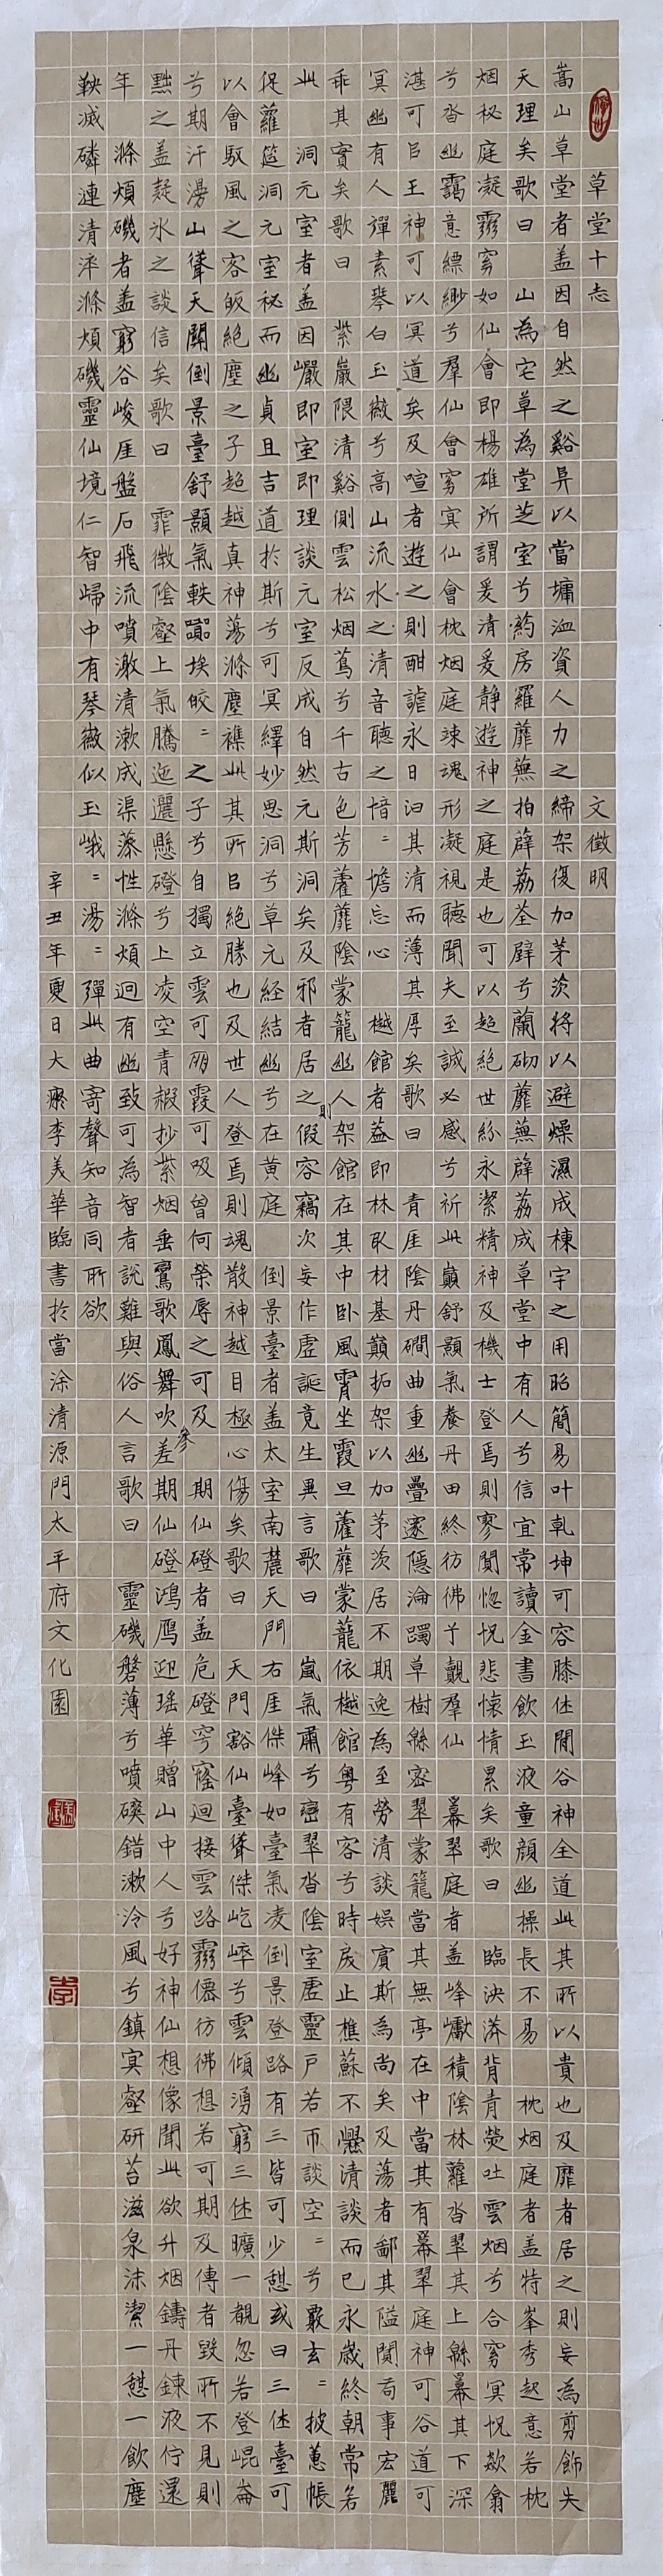 草堂十志 文徵明
嵩山草堂者盖因自然之谿阜以當墉洫資人力之締架復加茅茨將以避燥濕成棟宇之用昭簡易叶乾坤可容膝休閒谷神全道此其所以貴也及靡者居之則妄為剪飾失
天理矣歌曰 山為宅草為堂芝室兮葯房羅蘼蕪拍薜荔荃壁兮蘭砌蘼蕪薜荔成草堂中有人兮信宜常讀金書飲玉液童顏幽操長不易 枕烟庭者盖特峯秀起意若枕
烟秘庭凝霛窅如仙會即楊雄所謂爰清爰静遊神之庭是也可以超絕世紛永潔精神及機士登焉則寥閴惚怳悲懷情累矣歌曰 臨泱漭背青熒吐雲烟兮合窅冥怳欻翕
兮沓幽靄意縹緲兮羣仙會窅冥仙會枕烟庭竦魂形凝視聽聞夫至誠必感兮祈此巔舒顥氣養丹田終彷彿兮覯羣仙 冪翠庭者盖峰巘積陰林蘿沓翠其上緜冪其下深
湛可㠯王神可以冥道矣及喧者遊之則酣謔永日汩其清而薄其厚矣歌曰 青厓陰丹磵曲重幽疊邃隱淪躅草樹緜密翠蒙籠當其無亭在中當其有冪翠庭神可谷道可
冥幽有人彈素琴白玉徽兮高山流水之清音聽之愔=憺忘心 樾館者盖即林取材基巔拓架以加茅茨居不期逸為至勞清談娛賓斯為尚矣及蕩者鄙其隘閴苟事宏麗
乖其實矣歌曰 紫巖隈清谿側雲松烟蔦兮千古色芳藿蘼陰蒙籠幽人架館在其中卧風霄坐霞旦藿蘼蒙蘢依樾館粤有客兮時戾止樵蘇不爨清談而已永歲終朝常若
此 洞元室者盖因巖即室即理談元室反成自然元斯洞矣及邪者居之則假容竊次妄作虛誕竟生異言歌曰 嵐氣肅兮巒翠沓陰室虛靈戶若帀談空=兮覈玄=披蕙帳
促蘿筵洞元室秘而幽貞且吉道於斯兮可冥繹妙思洞兮草元経結幽兮在黃庭 倒景臺者盖太室南麓天門右厓傑峰如臺氣凌倒景登路有三皆可少憩或曰三休臺可
以會馭風之客皈絕塵之子超越真神蕩滌塵襟此其所㠯絕勝也及世人登焉則魂散神越目極心傷矣歌曰 天門豁仙臺聳傑屹崒兮雲傾湧窮三休曠一覩忽若登崐崙
兮期汗漫山聳天關倒景臺舒顥氣軼囂埃皎=之子兮自獨立雲可朋霞可吸曾何榮辱之可及 期仙磴者盖危磴穹窿迴接雲路霛僊彷彿想若可期及傳者毀所不見則
黜之盖疑氷之談信矣歌曰 霏微陰壑上氣騰迤邐懸磴兮上凌空青赮抄紫烟垂鸞歌鳳舞吹參差期仙磴鴻鴈迎瑤華贈山中人兮好神仙想像聞此欲升烟鑄丹鍊液佇還
年 滌煩磯者盖窮谷峻厓盤石飛流噴激清漱成渠藻性滌煩迴有幽致可為智者說難與俗人言歌曰 靈磯磐薄兮噴磢錯漱泠風兮鎮冥壑研苔滋泉沫潔一憩一飲塵
鞅滅磷連清淬滌煩磯靈仙境仁智歸中有琴徽似玉峨=湯=彈此曲寄聲知音同所欲
辛丑年夏日大瘀李美華臨書於當涂清源門太平府文化園